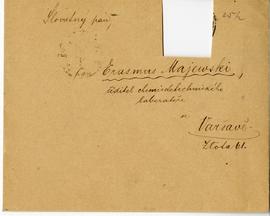 Slovutný pán,
25 h
pan Erasmus Majewski,
ředitel chemicktechnického
laboratoře
v
Varšavě
Zlota 61.